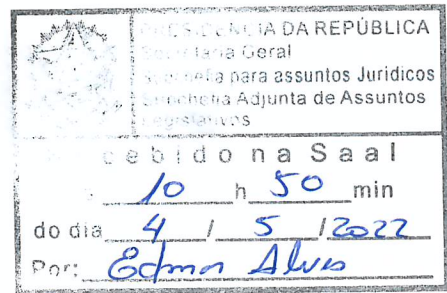 PRESIDÊNCIA DA REPÚBLICA
Secretaria Geral
para assuntos Jurídicos
Adjunta de Assuntos
Legislativos
cebido na Saal
10 h 50 min
do dia 4 / 5 /2022
Por: Alves